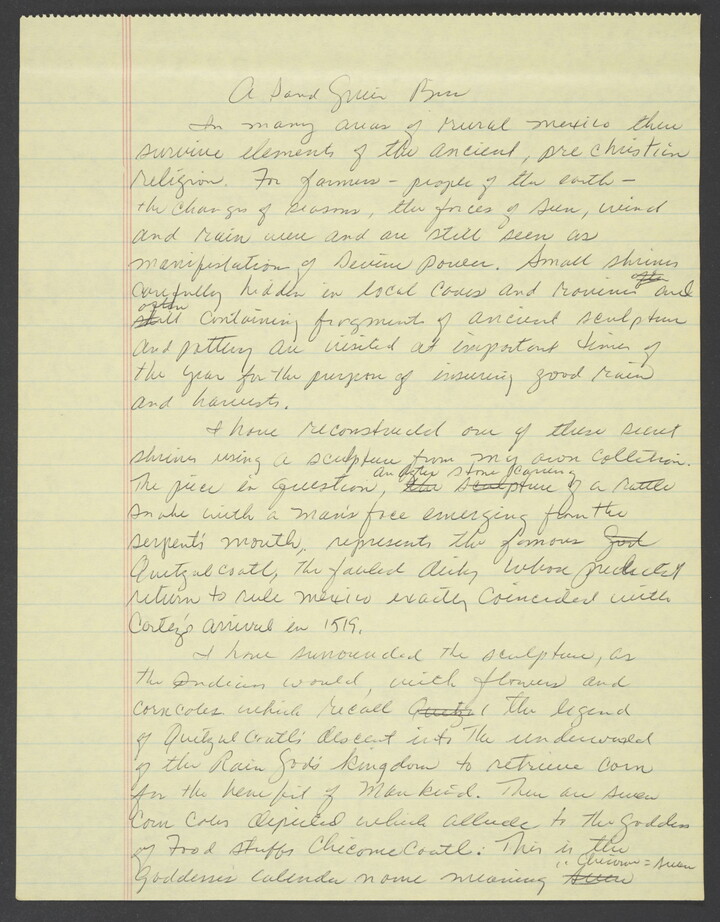 A Sand Green Box
In many areas of rural mexico there
survive elements of the ancient, pre christian
religion. For farmers - people of the earth -
the changes of seasons, the forces of sun, wind
and rain were and are still seen as
manifestation of Devine power. Small shrines
carefully hidden in local caves and ravines often and
often still containing fragments of ancient sculpture
and pottery are visited at important times of
the year for the purpose of insuring good rain
and harvests.
I have reconstructed one of these secret
shrines using a sculpture from my own collection.
The piece in question, an Aztec stone carving the sculpture of a rattle
snake with a man's face emerging from the
serpent's mouth, represents the famous God
Quetzalcoatl, the fabled deity whose predicted
return to rule mexico exactly coincided with
Cortez's arrival in 1519.
I have surrounded the sculpture, as
the Indians would, with flowers and
corncobs which recall Quetz the legend
of Quetzalcoatl's descent into the underworld
of the Rain God's kingdom to retrieve corn
for the benefit of Mankind. There are seven
corn cobs depicted which allude to the goddess
of Food stuffs ChicomeCoatl: This is the
goddesses calendar name meaning seven "Chicome = seven